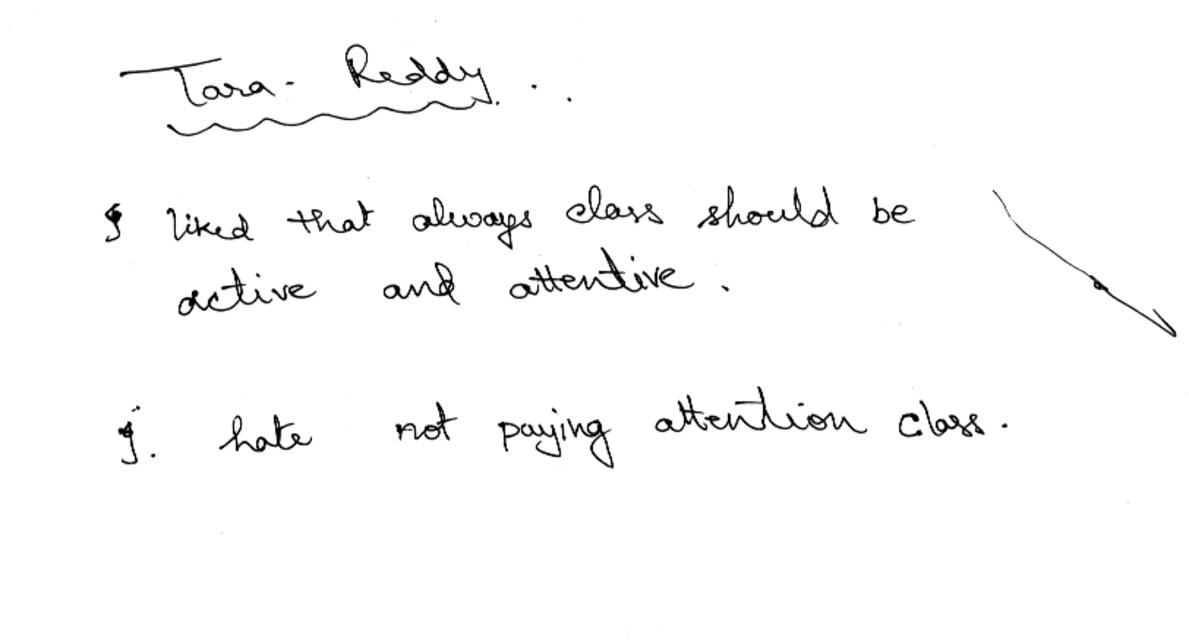 Tara. Reddy...
I liked that always class should be
active and attentive.
I. hate not paying attention class.